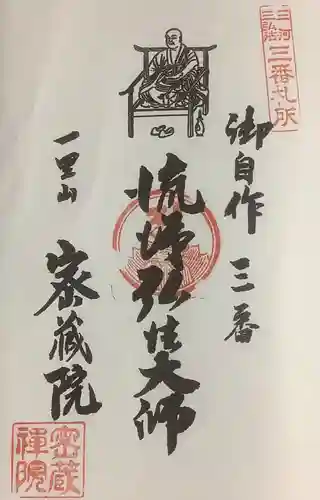 三河
三弘法
三番札所
御自作 三番
流涕弘法大師
一里山
密蔵院
密蔵
禅院